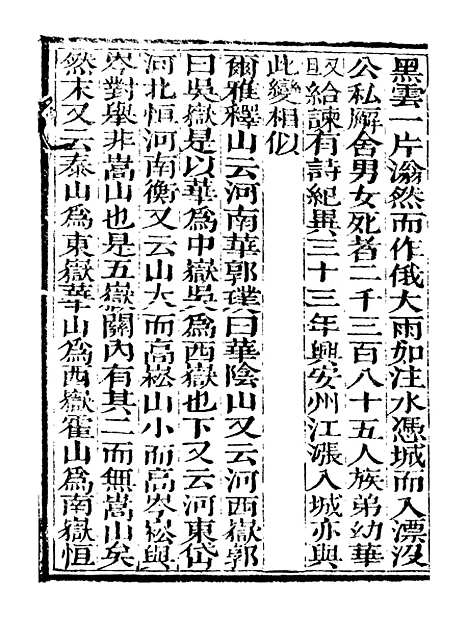 黑雲一片滃然而作俄大雨如注水憑城而入漂沒
公私廨舍男女死者二千三百八十五人族弟幼華
又旦給諫有詩紀異三十三年興安州江漲入城亦與
此變相似
爾雅釋山云河南華郭璞曰華陰山又云河西嶽郭
曰吳嶽是以華為中嶽吳為西嶽也下又云河東岱
河北恒河南衡又云山大而高崧山小而高岑崧與
岑對舉非嵩山也是五嶽關內有其二而無嵩山矣
然末又云泰山為東嶽華山為西嶽霍山為南嶽恒